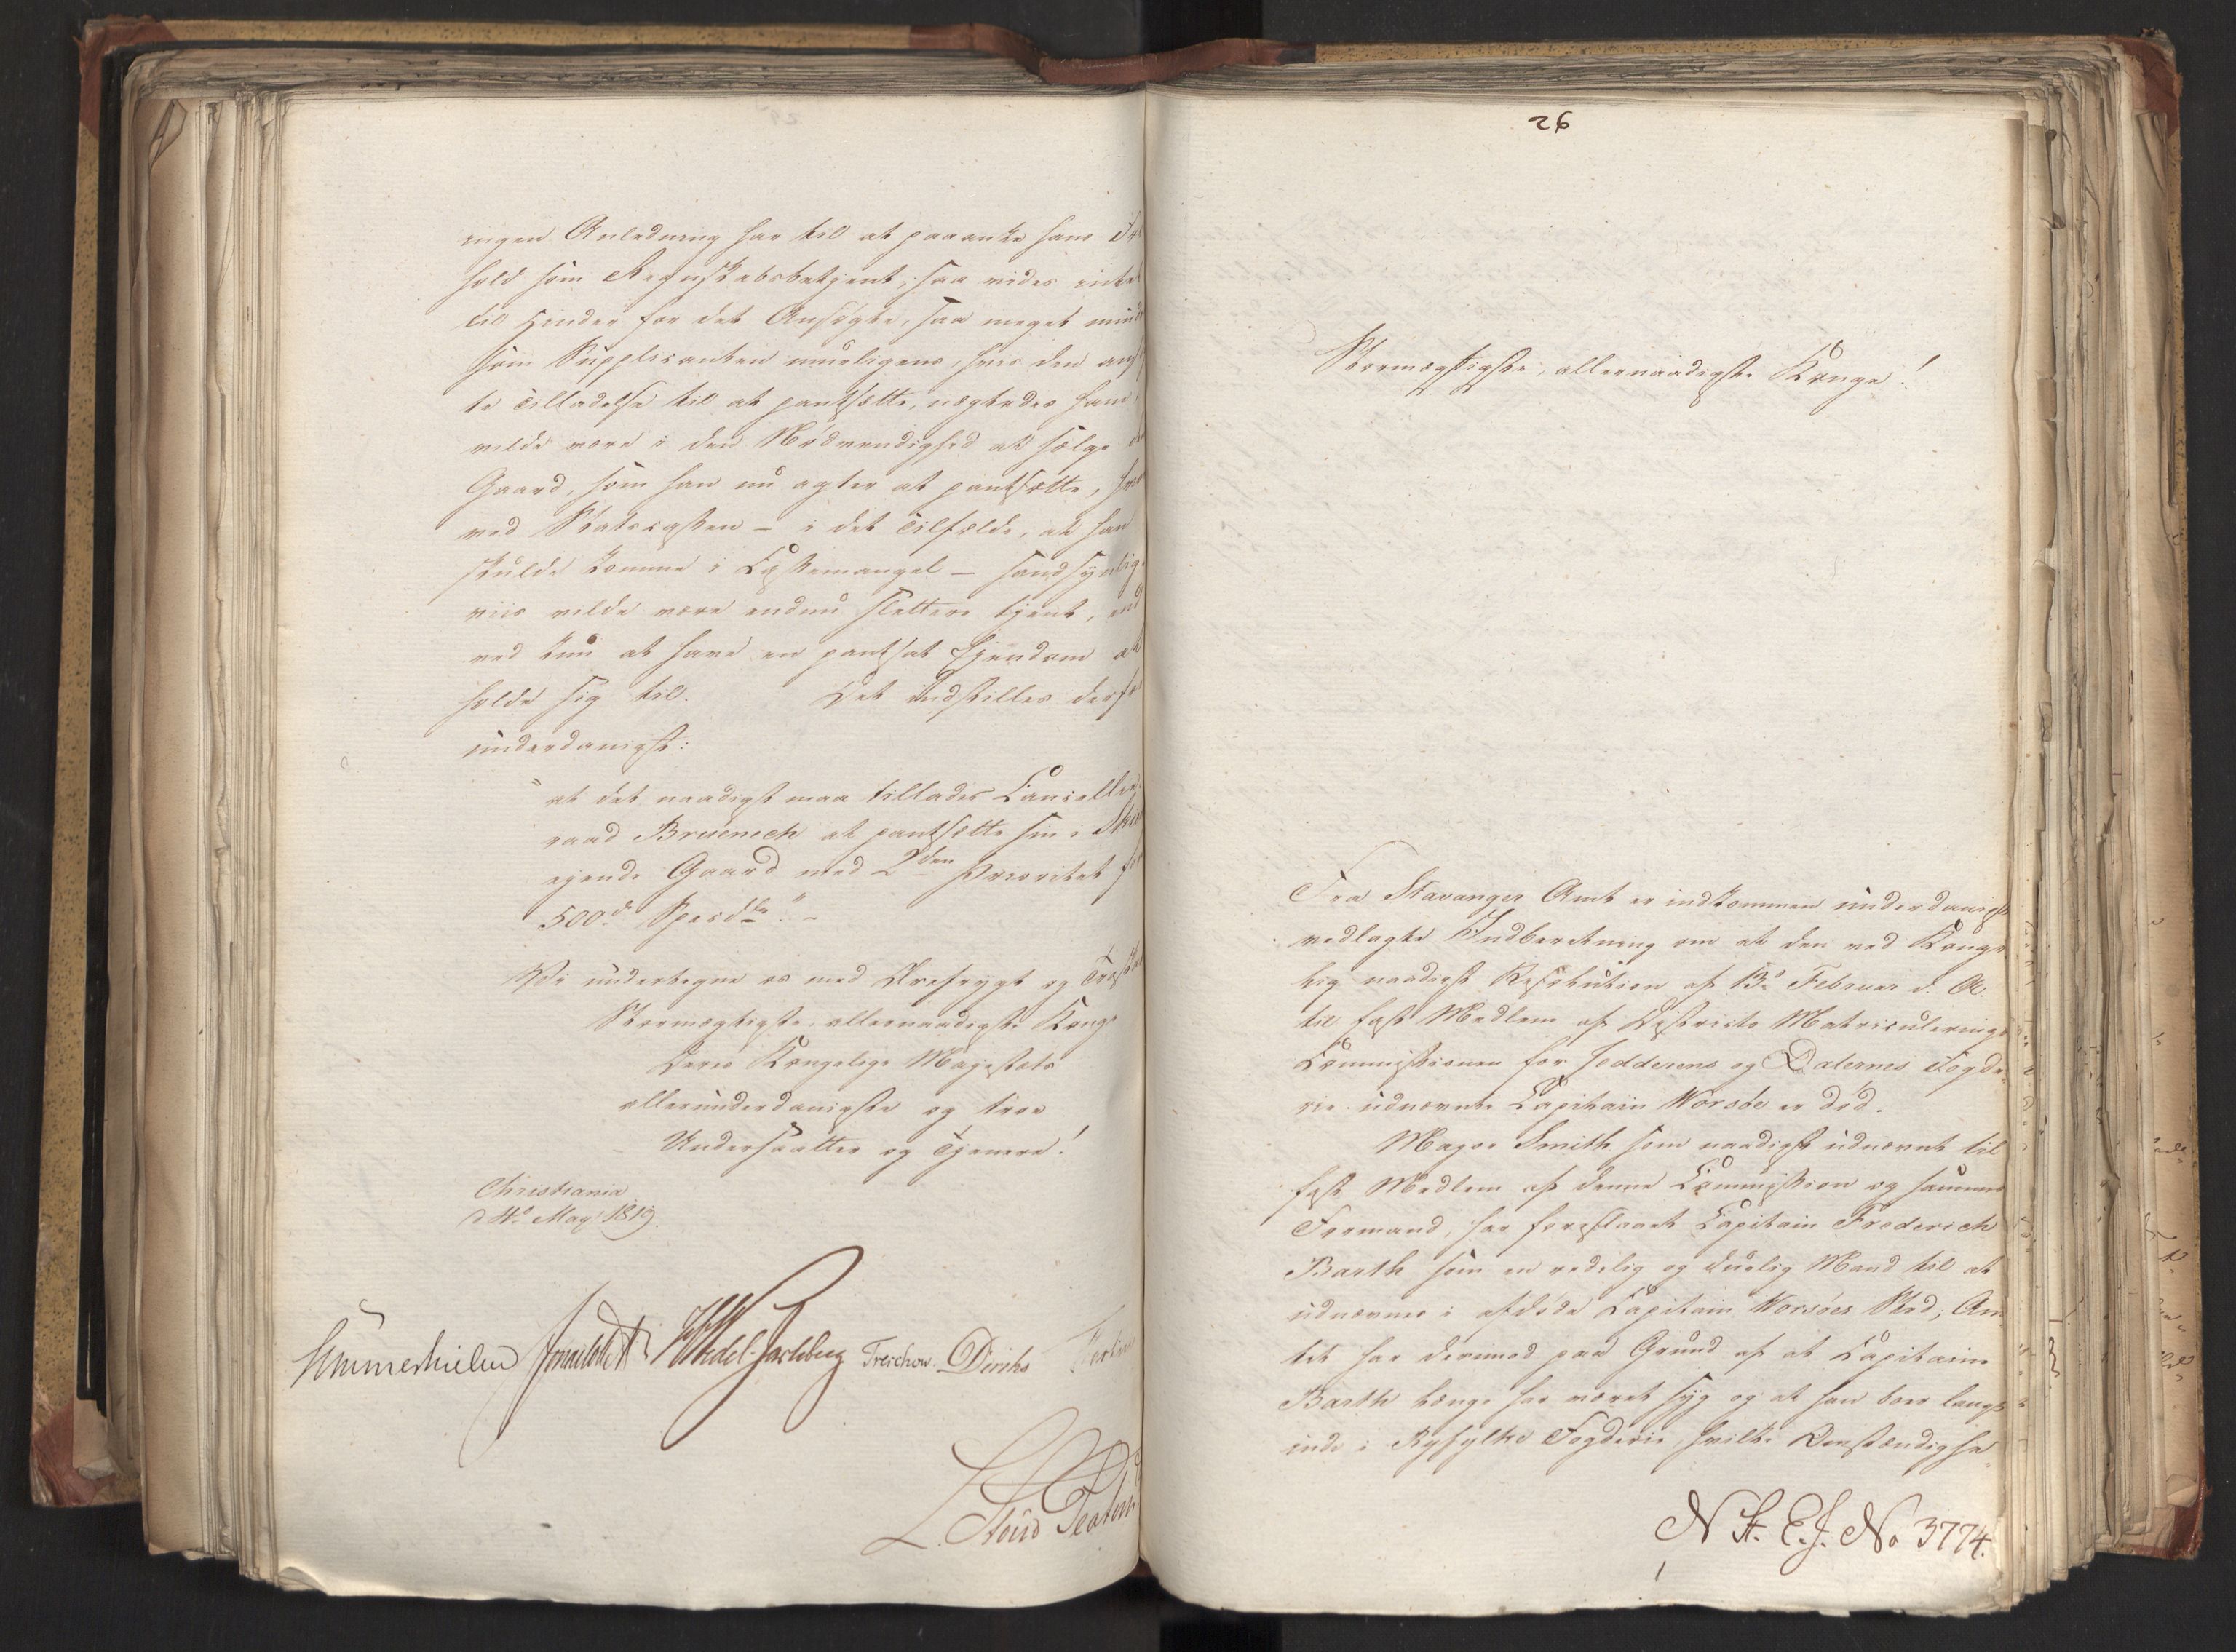 ingen Anledning har til at paaanke hans For
hold som Regnskabsbetjent, saa vides intet
til Hinder for det Ansøgte, saa meget mindre
som Supplicanten mueligens, hvis den ansøg
te Tilladelse til at pantsætte, nægtedes ham,
vilde være i den Nødvendighed at sælge den
Gaard, som han nu agter at pantsætte, hvor
ved Statscassen – i det Tilfælde, at han
skulde komme i Cassemangel – sandsynlig
viis vilde være endnu slettere tjent, end
ved kun at have en pantsat Ejendom at
holde sig til. Det indstilles derfor
underdanigst:
"at det naadigst maa tillades Cancellie
raad Bruenech at pantsætte sin i Skien
ejende Gaard med 2den Prioritet for
500d Spesdlr." –
Vi undertegne os med Ærefrygt og Troskab
Stormægtigste, allernaadigste Konge
Deres Kongelige Majestæts
allerunderdanigste og troe
Undersaatter og Tjenere!
Christiania
d 4de May 1819.
Sommerhielm Wedel-Jarlsberg Treschow. Diriks
L. Stoud Platou
26
Stormægtigste, allernaadigste Konge!
Fra Stavanger Amt er indkommen underdanigst
vedlagte Indberetning om at den ved Konge
lig naadigst Resolution af 13de Februar d. A.
til fast Medlem af Districts Matriculerings
Commissionen for Jedderens og Dalernes Fogde
rie udnævnte Capitain Worsøe er død.
Major Smith som naadigst udnævnt til
fast Medlem af denne Commission og sammes
Formand, har foreslaaet Capitain Frederich
Barth som en redelig og duelig Mand til at
udnævnes i afdøde Capitain Worsøes Sted; Am
tet har derimod paa Grund af at Capitain
Barth længe har været syg og at han boer langt
inde i Ryfylke Fogderie, hvilke Omstændighe-
N St. E. J. No 3774.